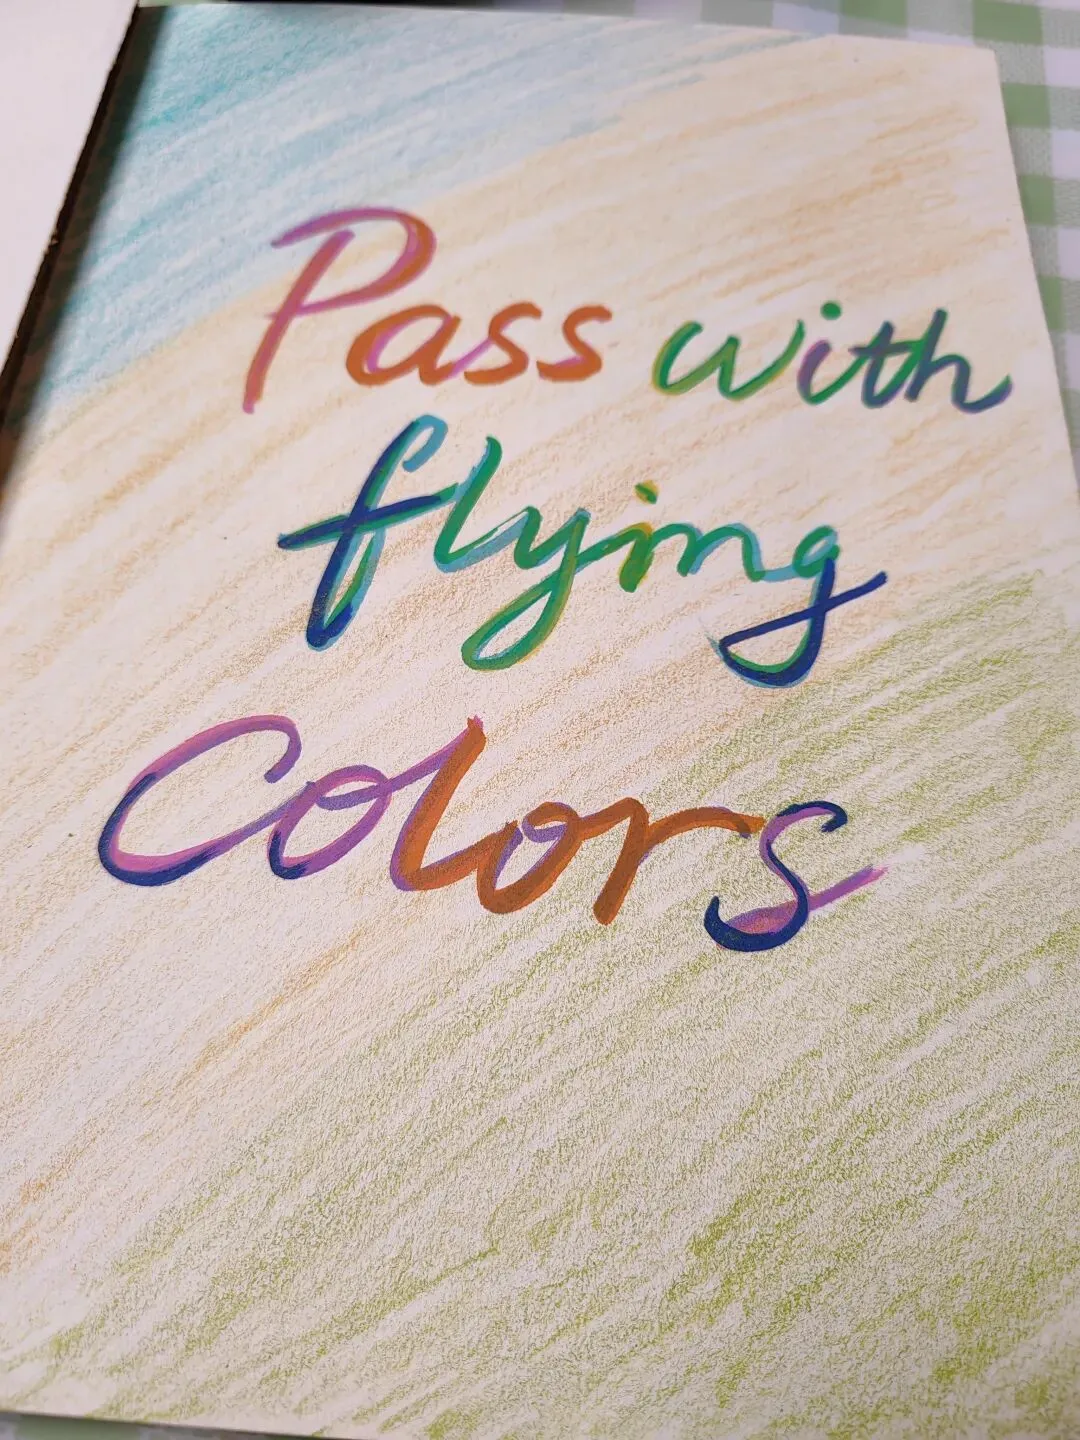 Pass with
flying
Colors